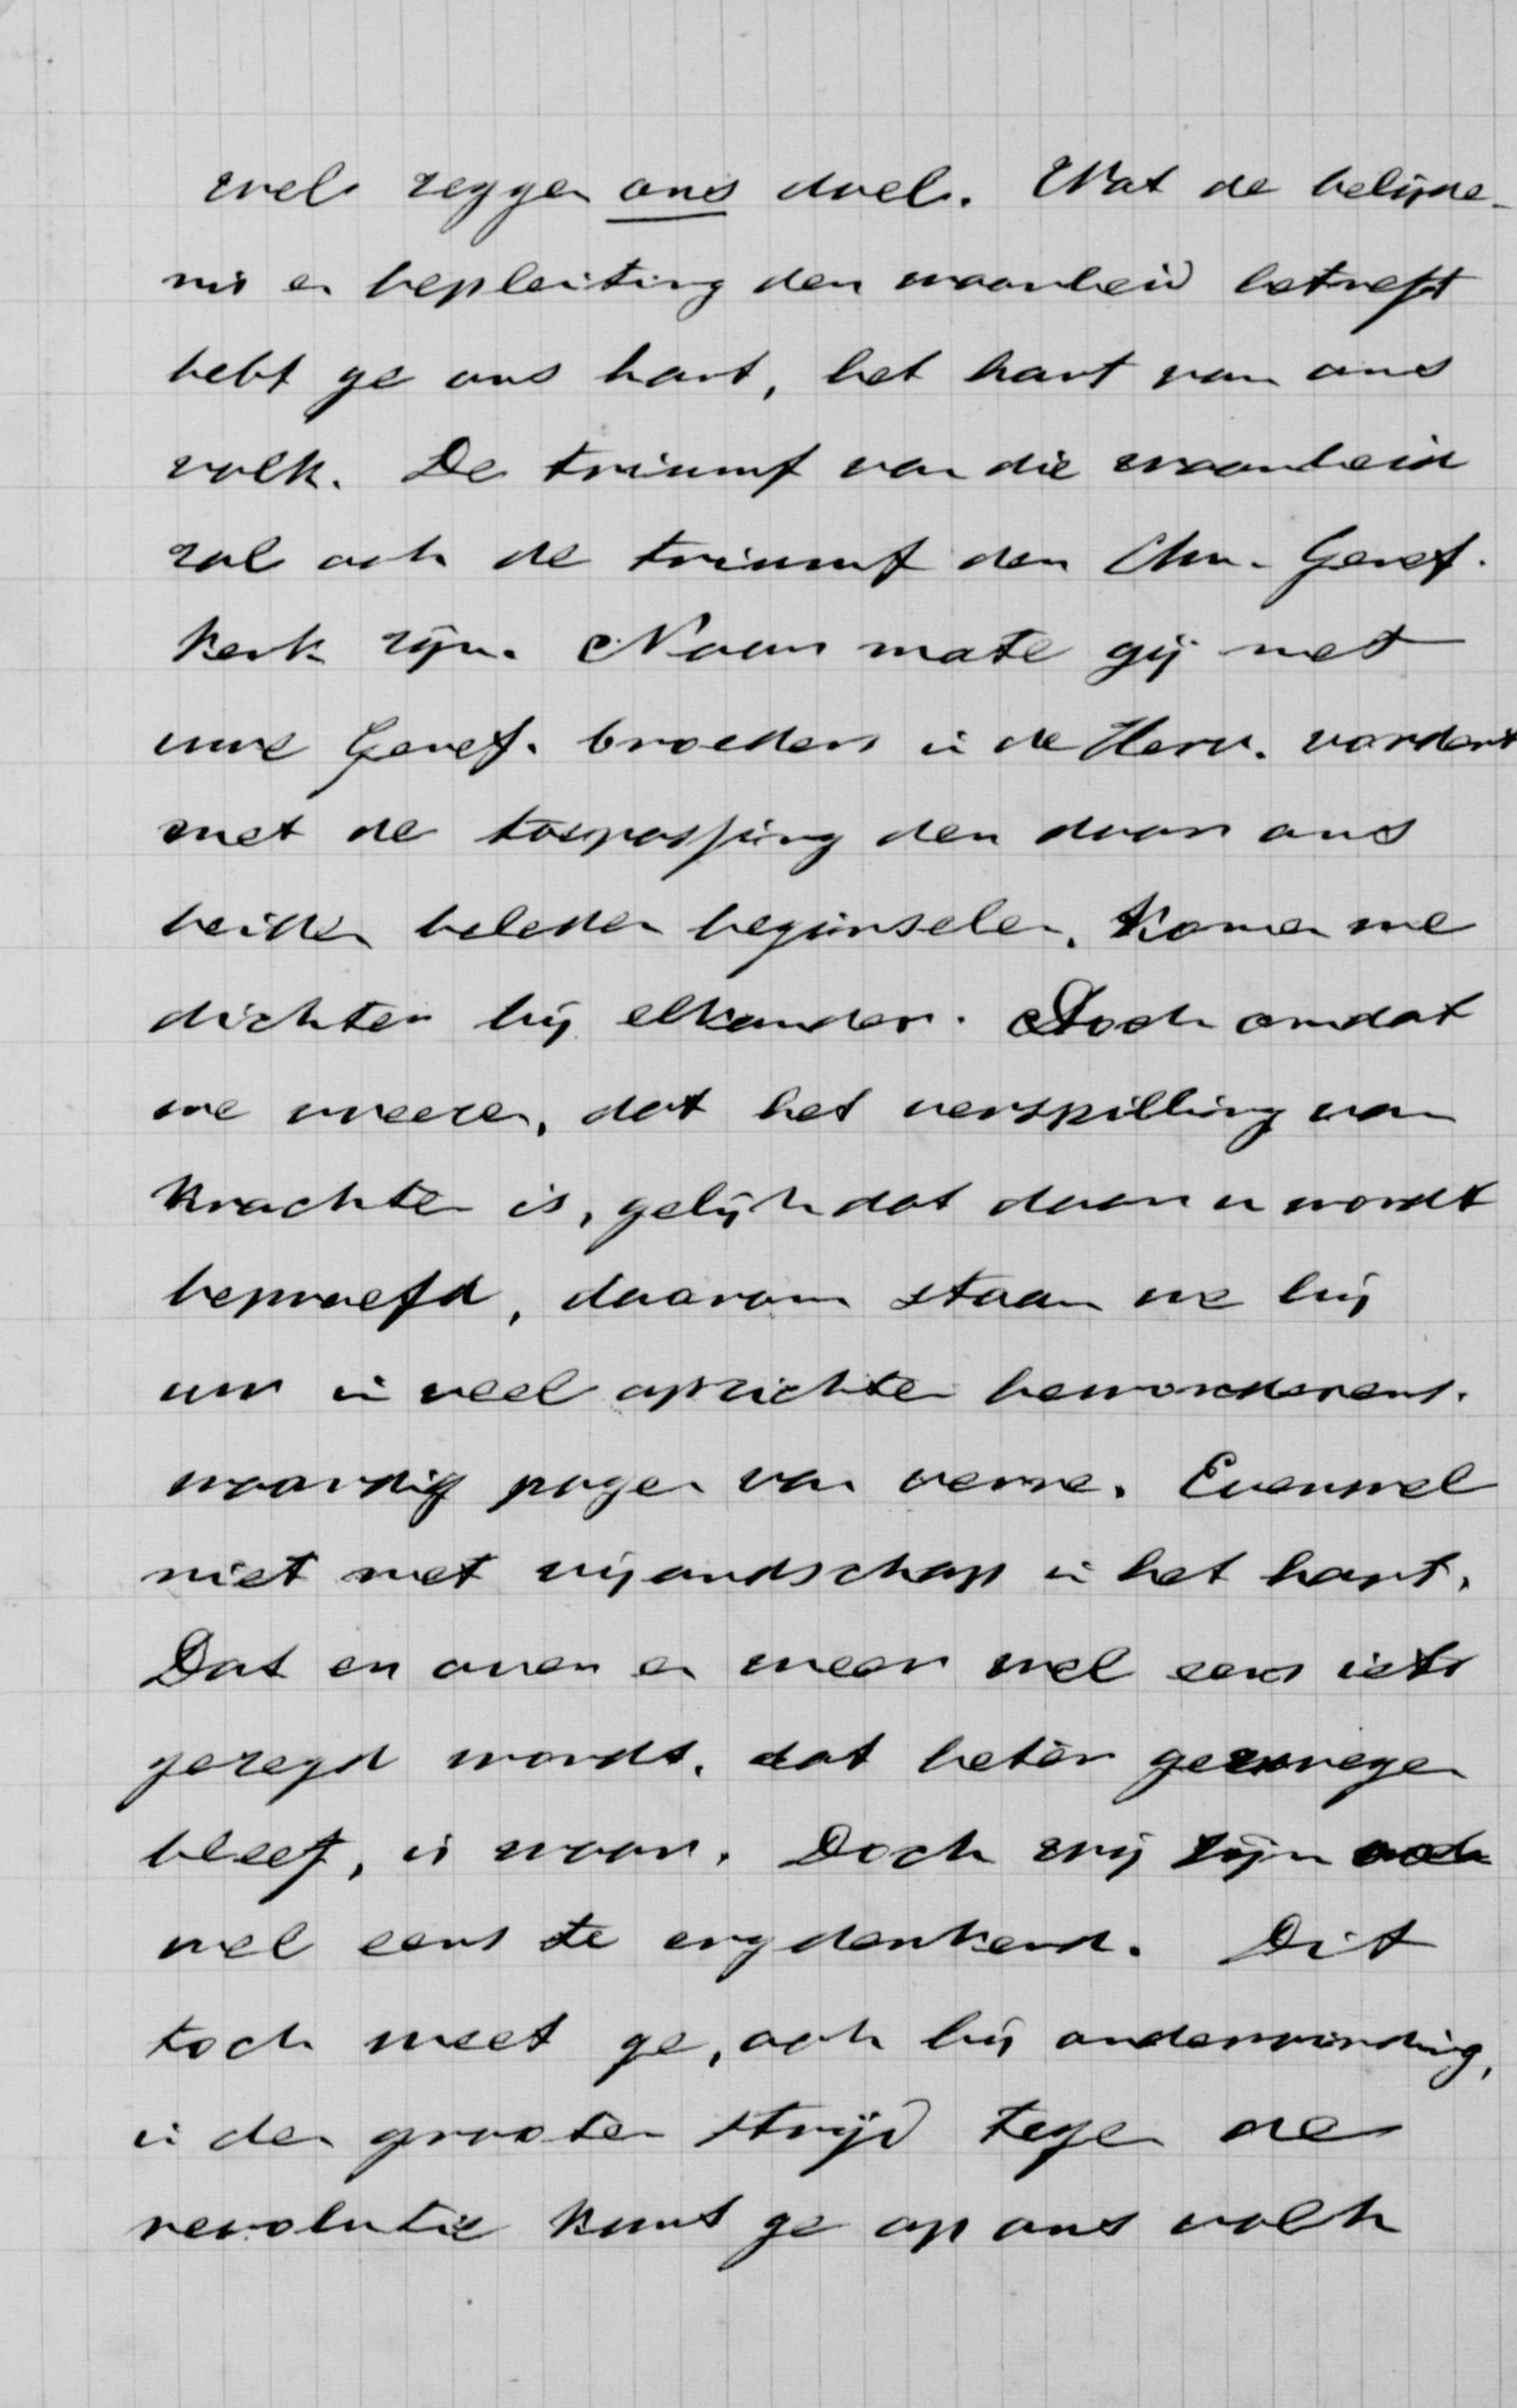 wel zeggen ons doel. Wat de belijde-
nis en bepleiting der waarheid betreft
hebt ge ons hart, het hart van ons
volk. De triumf van die waarheid
zal ook de triumf der Chr. Geref.
Kerk zijn. Naar mate gij met
uwe Geref. broeders in de Herv. vordert
met de toepassing der door ons
beiden beleden beginselen, komen we
dichter bij elkander. Doch omdat
we vreezen, dat het verspilling van
krachten is, gelijk dat door u wordt
beproefd, daarom staan we bij
uw in veel opzichten bewonderens-
waardig pogen van verre. Evenwel
niet met vijandschap in het hart.
Dat er over en weer wel eens iets
gezegd wordt, dat beter gezwegen
bleef, is waar. Doch wij zijn ook
wel eens te ergdenkend. Dit
toch weet ge, ook bij ondervinding,
in den grooten strijd tegen de
revolutie kunt ge op ons volk